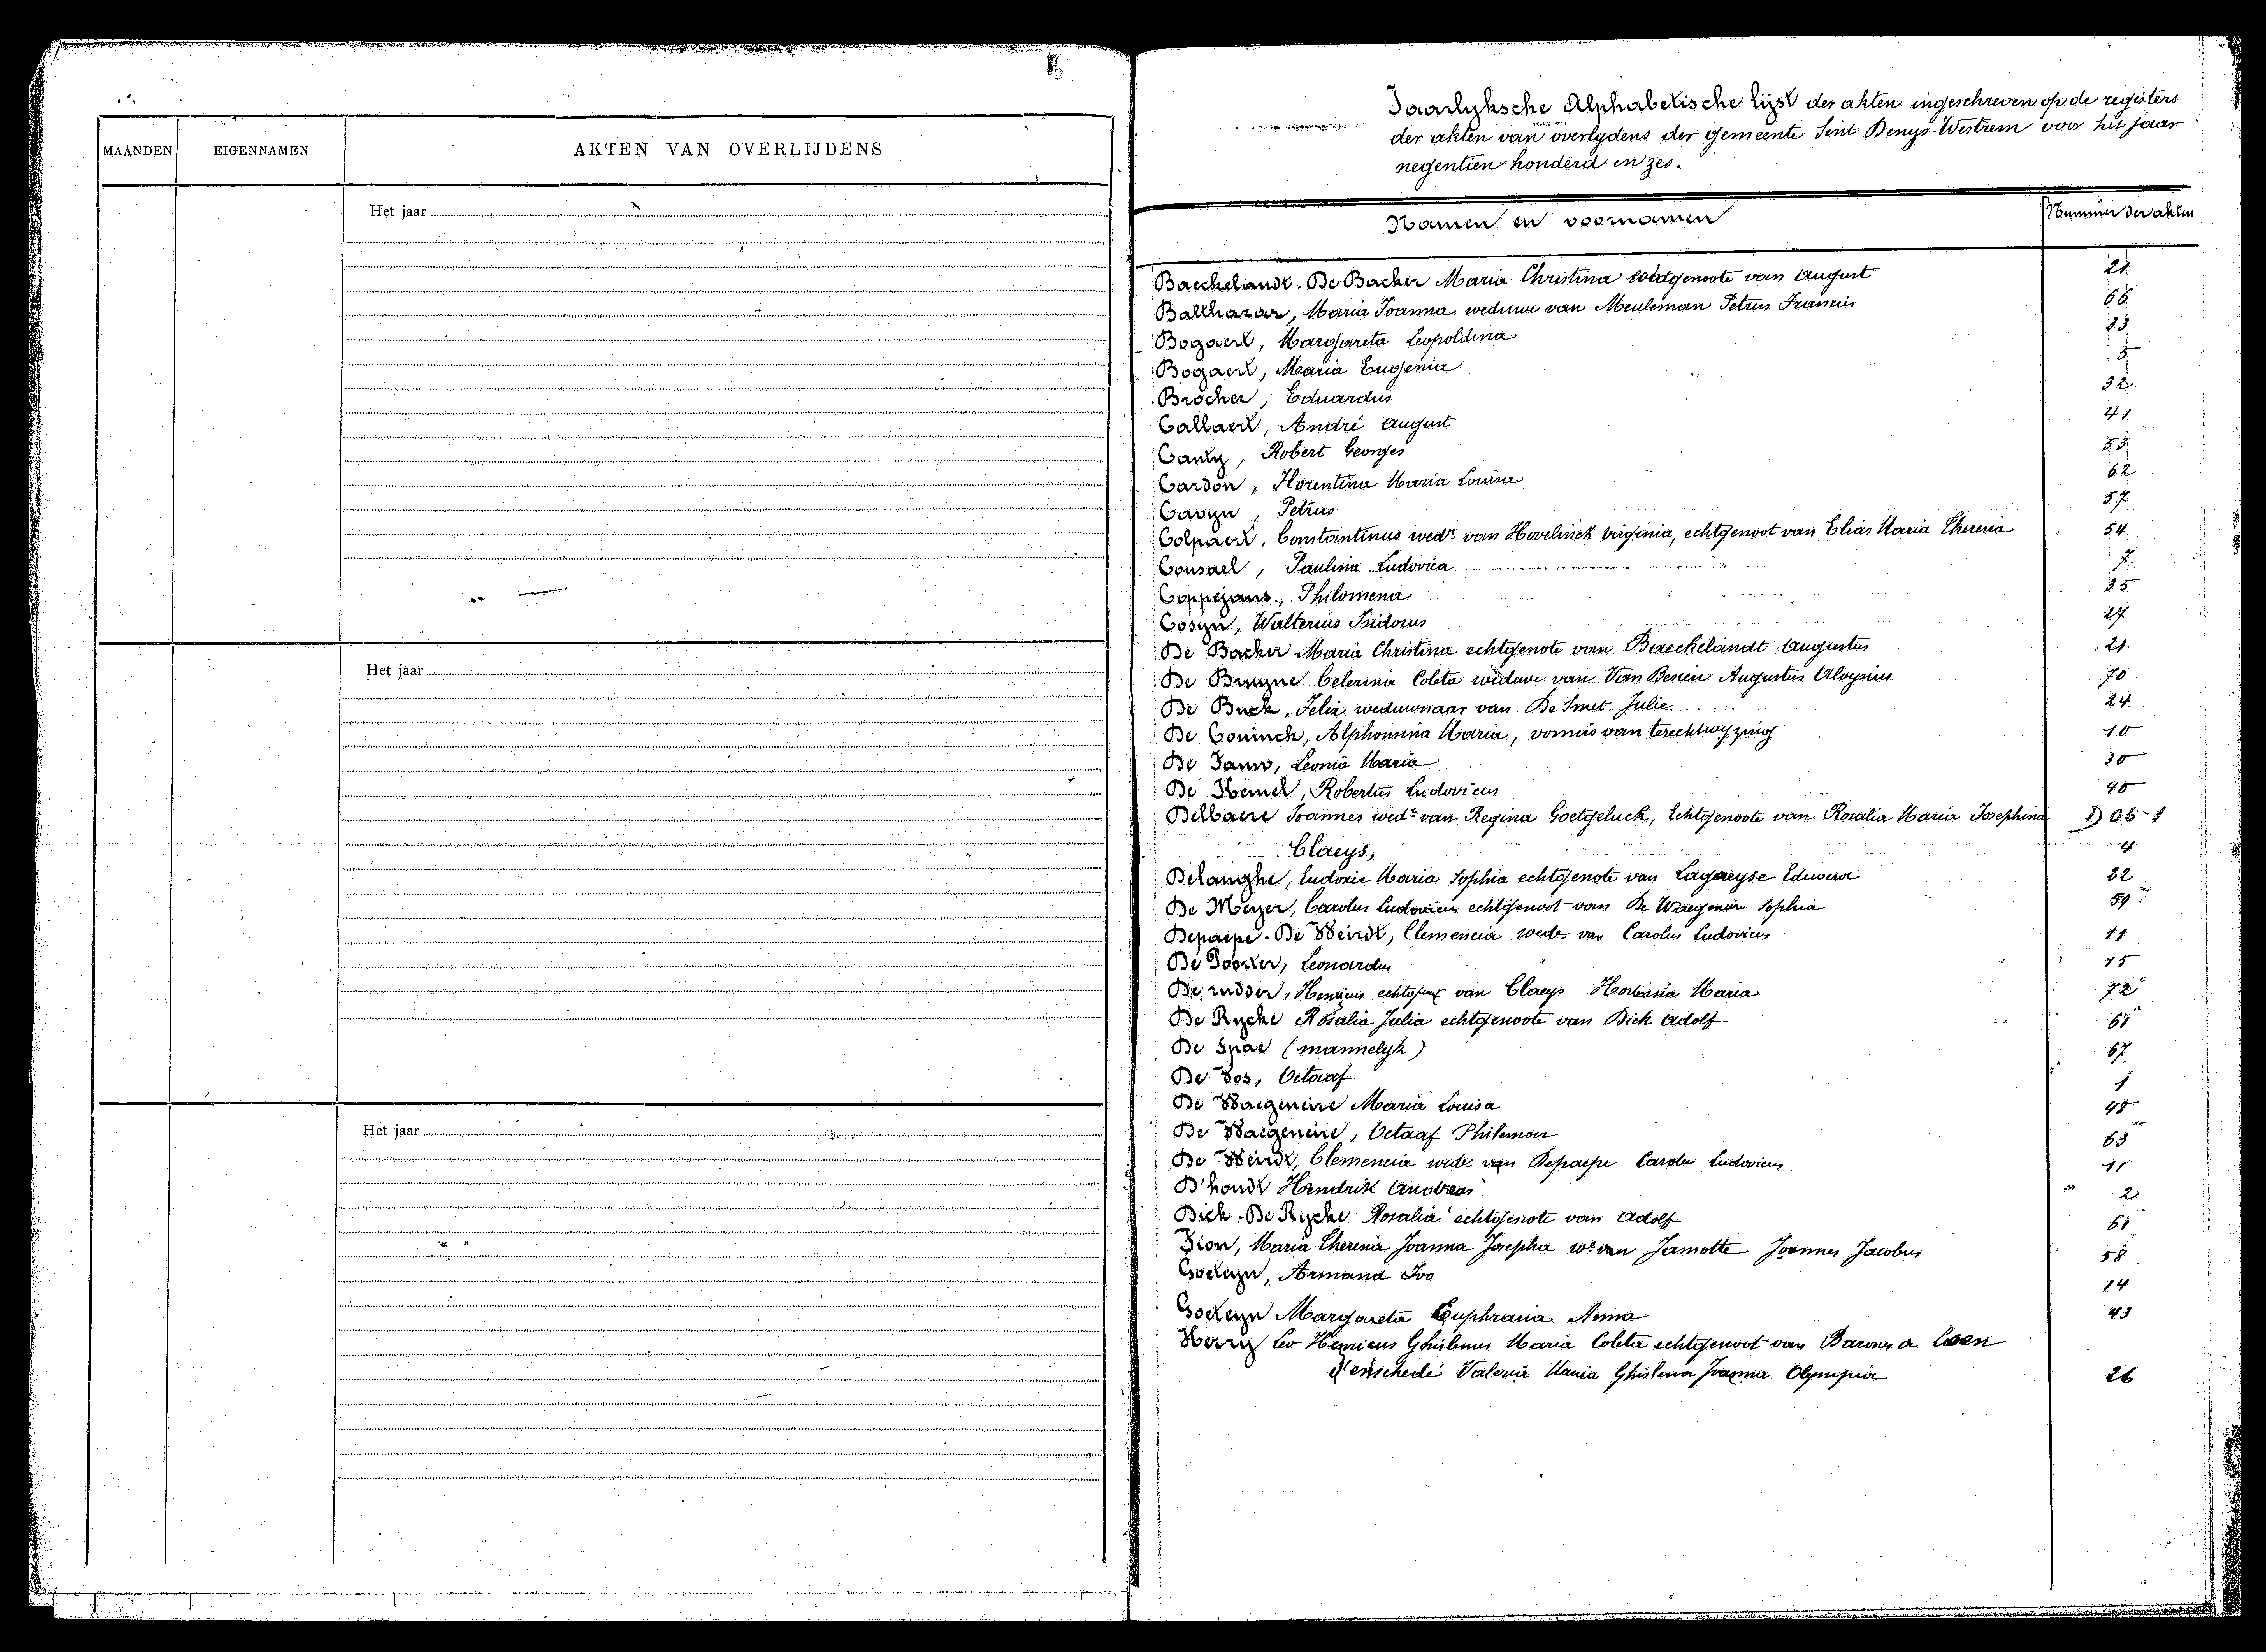 MAANDEN EIGENNAMEN AKTEN VAN OVERLIJDENS
Het jaar
Het jaar
Het jaar
Jaarlyksche Alphabetische lijst der akten ingeschreven op de registers
der akten van overlydens der gemeente Sint Denys-Westrem voor het jaar
negentien honderd en zes.
Namen en voornamen Nummer der akten
Baeckelandt - De Backer Maria Christina echtgenoote van August 21
Balthazar, Maria Joanna weduwe van Meuleman Petrus Francis 66
Bogaert, Margareta Leopoldina 33
Bogaert, Maria Eugenia 5
Brocher, Eduardus 32
Callaert, André August 41
Canty, Robert Georges 53
Cardon, Florentina Maria Louisa 62
Cavyn, Petrus 57
Colpaert, Constantinus wedr. van Hovelinck Virginia, echtgenoot van Elias Maria Theresia 54
Consael, Paulina Ludovica 7
Coppejans, Philomena 35
Cosyn, Walterius Isidorus 27
De Backer Maria Christina echtgenote van Baeckelandt Augustus 21
De Bruyne Celerina Coleta weduwe van Van Besien Augustus Aloysius 70
De Buck, Felix weduwnaar van De Smet Julie 24
De Coninck, Alphonsina Maria, vonnis van terechtwyzing 10
De Jauw, Leonia Maria 30
De Kemel, Robertus Ludovicus 40
Delbaere Joannes wedr. van Regina Goetgeluck, Echtgenoote van Rosalia Maria Josephina D 06-1
Claeys, 4
Delanghe, Eudoxie Maria Sophia echtgenote van Lagaeysse Edward 22
De Meyer, Carolus Ludovicus echtgenoot van De Waegeneire Sophia 59
Depaepe - De Weirdt, Clemencia wede. van Carolus Ludovicus 11
De Poorter, Leonardus 15
De rudder, Henricus echtgenoot van Claeys Hortensia Maria 72
De Rycke Rosalia Julia echtgenoote van Dick Adolf 61
De Spae (mannelyk) 67
De Vos, Octaaf 1
De Waegeneire Maria Louisa 48
De Waegeneire, Octaaf Philemon 63
De Weirdt, Clemencia wede. van Depaepe Carolu Ludovicus 11
D'hondt Hendrik Andreas 2
Dick - De Rycke Rosalia echtgenote van Adolf 61
Fion, Maria Theresia Joanna Josepha we. van Jamotte Joannes Jacobus 58
Goeteyn, Armand Ivo 14
Goeteyn Margareta Euphrasia Anna 43
Herry Leo Henricus Ghislenus Maria Coleta echtgenoot van Barones a Coen
d'enschedé Valerie Maria Ghislena Joanna Olympia 26